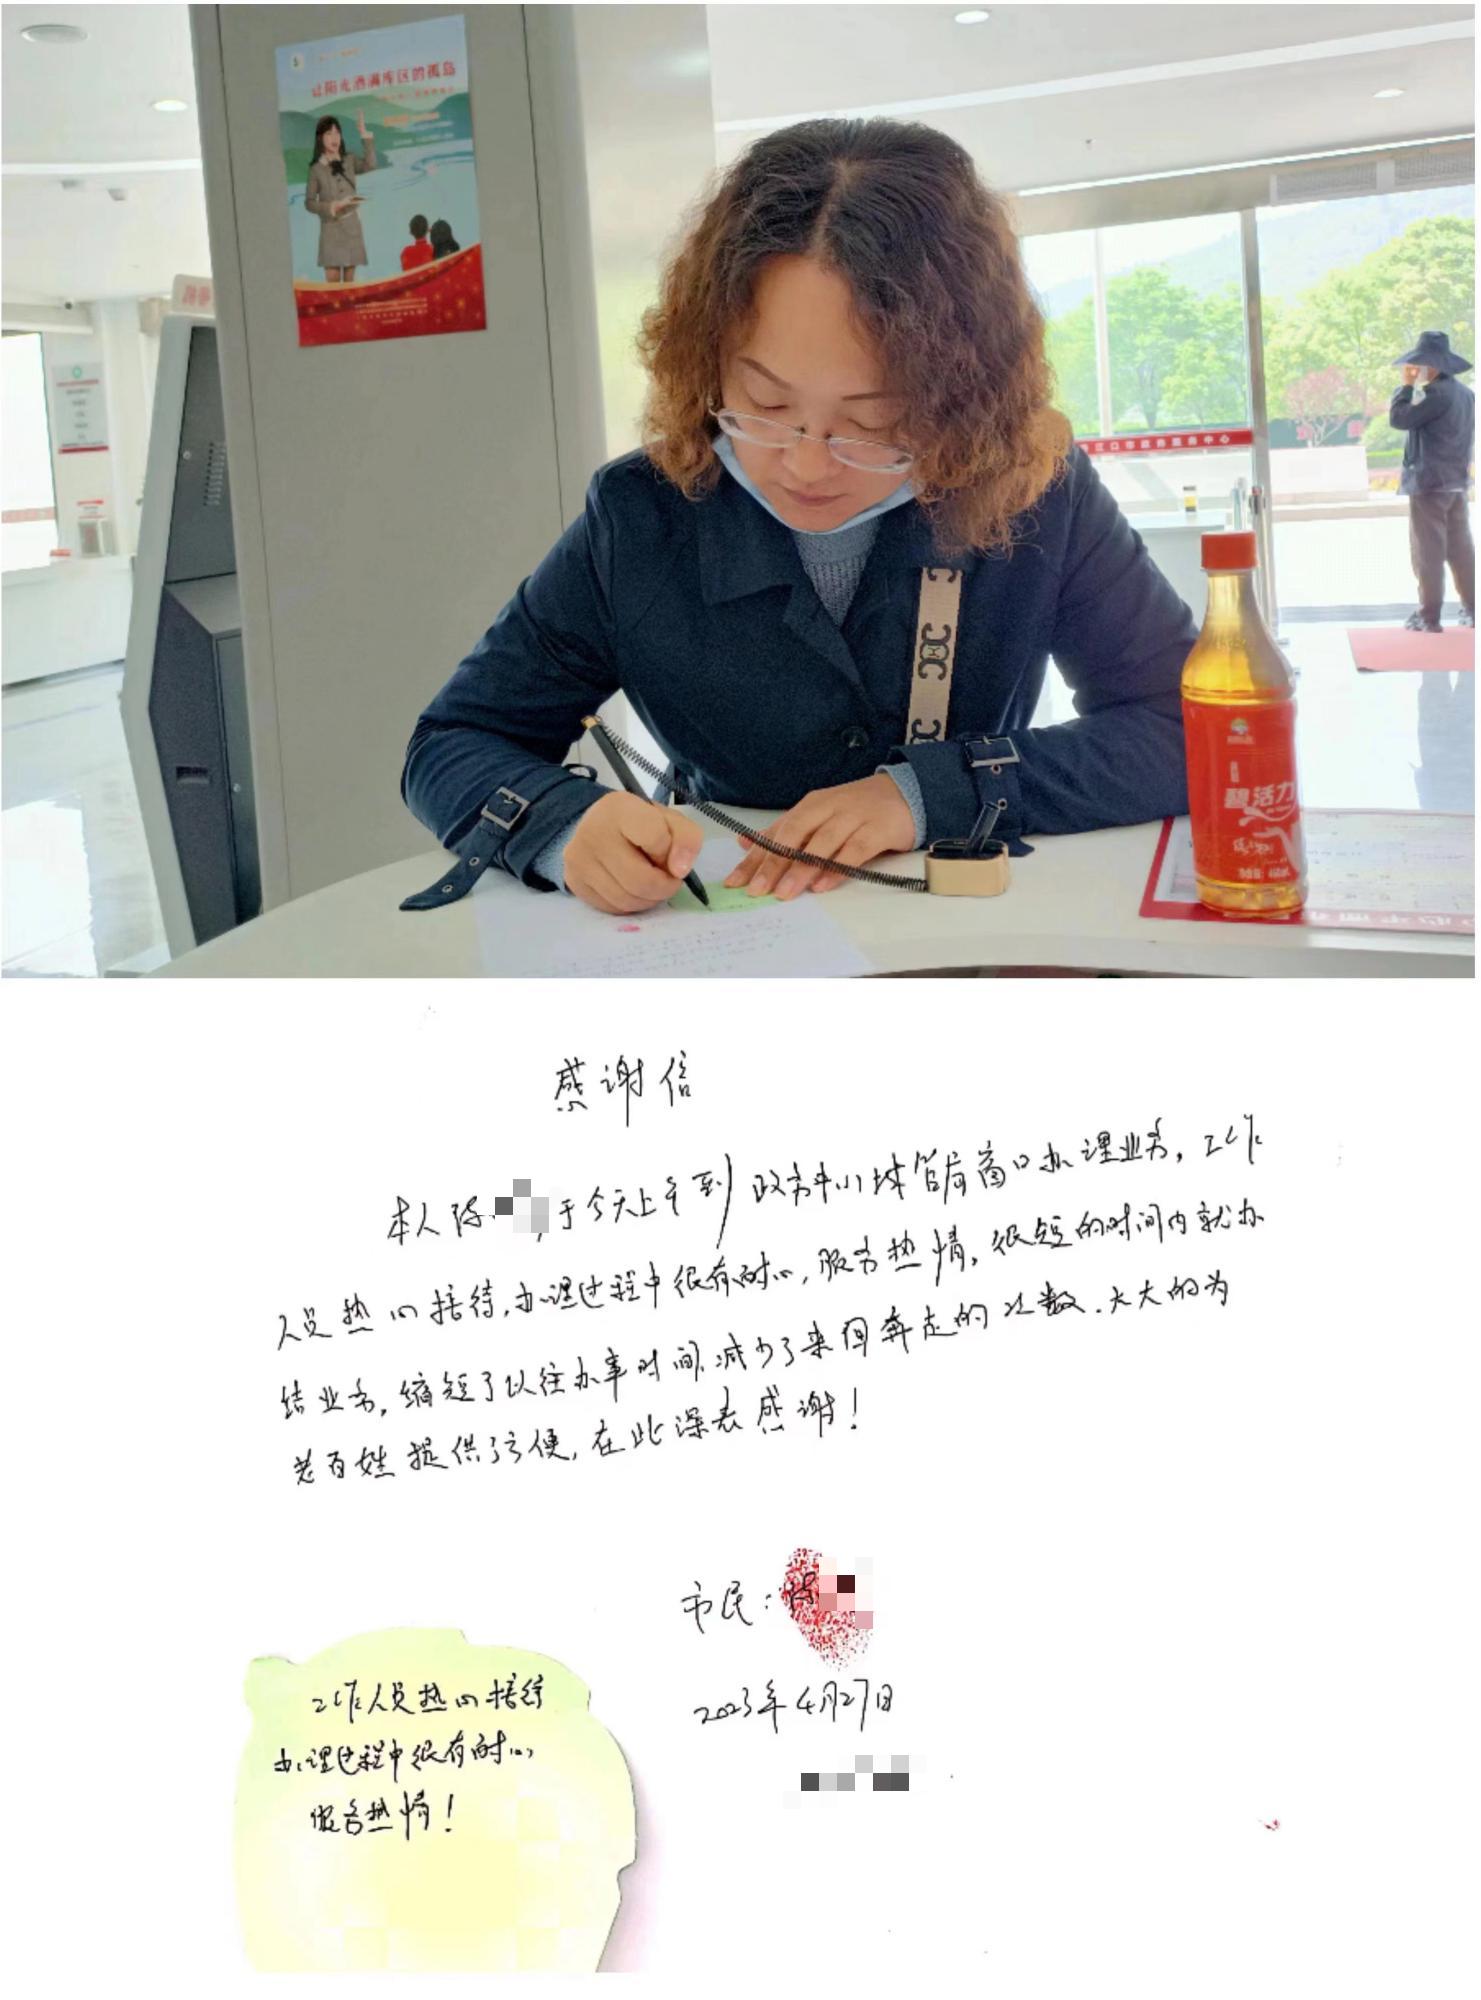 让阳光洒满库区的孤岛
江口市政务服务中心
碧活力
感谢信
本人陈 于今天上午到政务中心城管局窗口办理业务,工作
人员热心接待,办理过程中很有耐心,服务热情,很短的时间内就办
结业务,缩短了以往办事时间,减少了来回奔走的次数,大大的为
老百姓提供了方便,在此深表感谢!
市民:陈
2023年4月27日
工作人员热心接待
办理过程中很有耐心
服务热情!